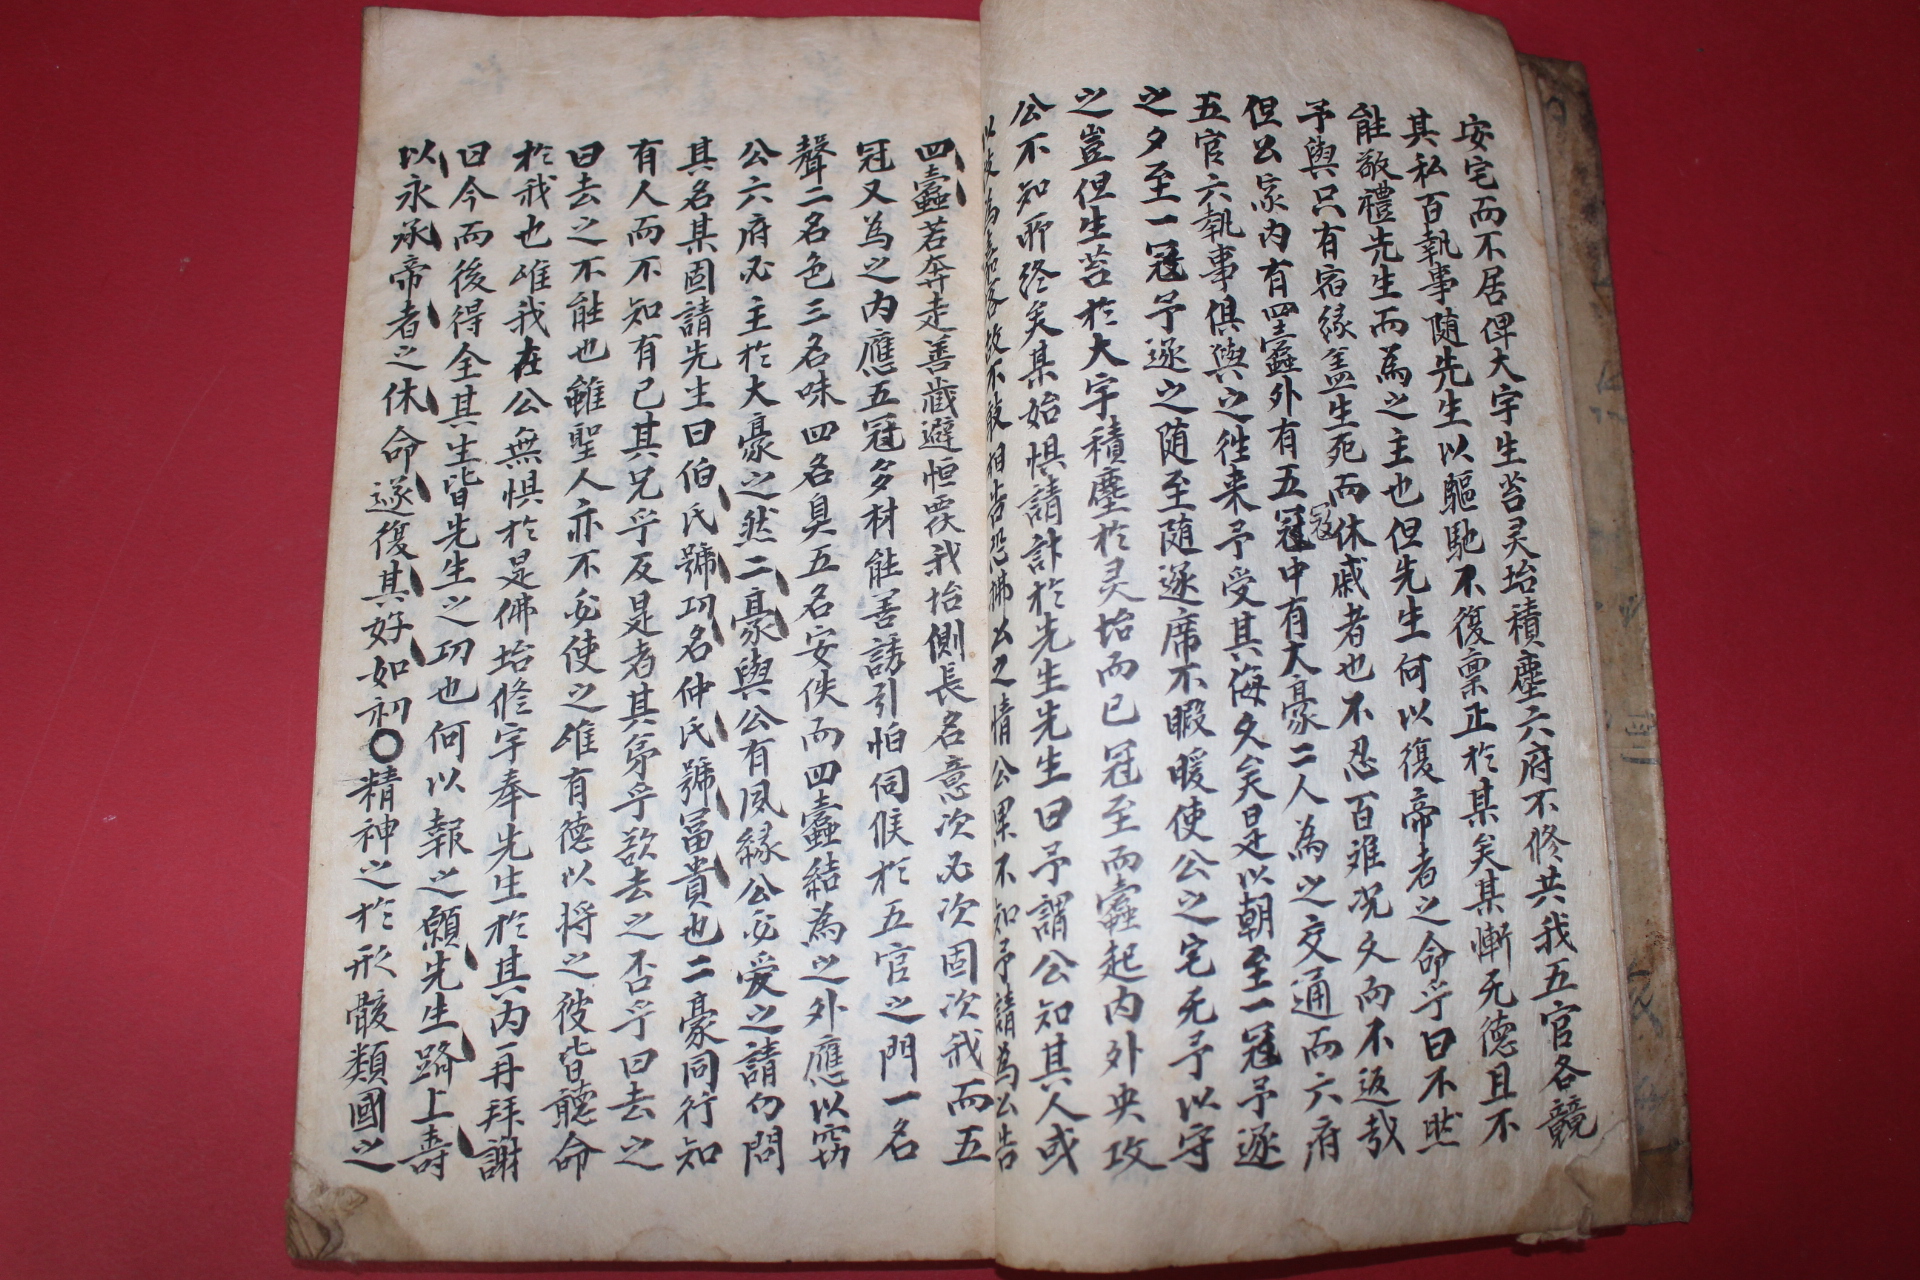 安宅而不居俾大宇生苔灵坮積塵六府不修共我五官各競
其私百執事随先生以驅馳不復禀正於某矣某慚无德且不
能敬禮先生而為之主也但先生何以復帝者之命乎曰不然
予與只有宿緣盖生死而休戚者也不忍百难况久而不返哉
但公家内有四蠧外有五冦冦中有大豪二人為之交通而六府
五官六執事俱與之徃来予受其侮久矣是以朝至一冦予遂
之夕至一冦予遂之随至随遂席不暇暖使公之宅无予以守
之豈但生苔於大宇積塵於灵坮而已冦至而蠧起内外央攻
公不知所終矣某始惧請計於先生先生曰予謂公知其人或
以故為嘉客故不敢相告恐拂公之情公果不知予請為公告
四蠧若奔走善藏避恒覄我坮側長名意次必次固次我而五
冦又為之内應五冦多材能善誘引怕伺候於五官之門一名
聲二名色三名味四名臭五名安佚而四蠧結為之外應以窃
公六府必主於大豪之然二豪與公有夙緣公必爱之請勿問
其名某固請先生曰伯氏號功名仲氏號冨貴也二豪同行知
有人而不知有己其兄乎反是者其弟乎欲去之否乎曰去之
曰去之不能也雖聖人亦不必使之难有德以将之彼皆聽命
於我也唯我在公無惧於是佛坮修宇奉先生於其内再拜謝
曰今而後得全其生皆先生之功也何以報之願先生躋上壽
以永承帝者之休命遂復其好如初〇精神之於形骸類國之